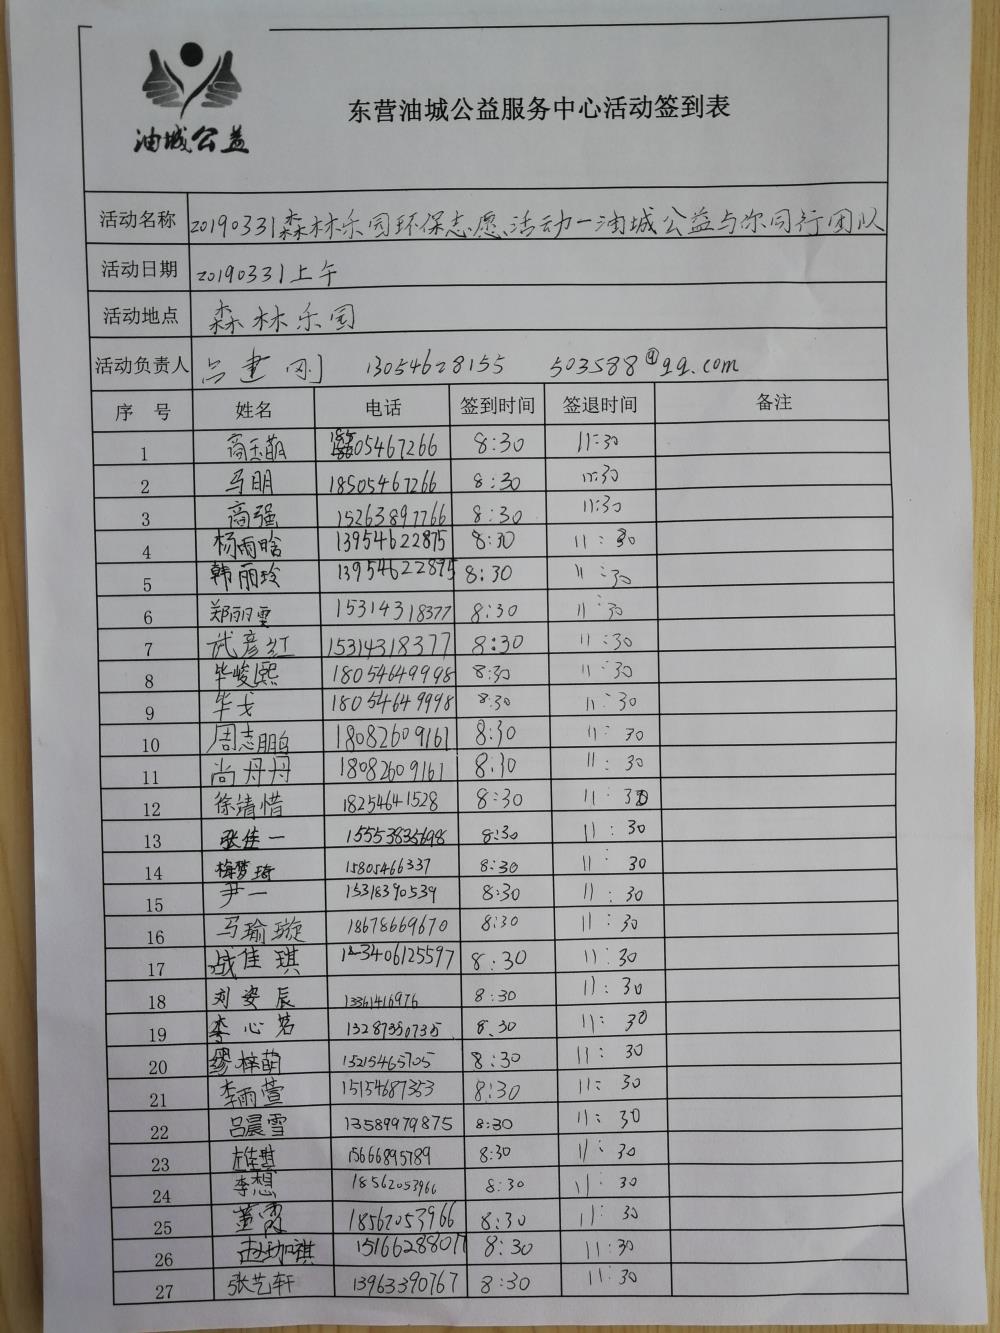 油城公益
东营油城公益服务中心活动签到表
活动名称 20190331森林乐园环保志愿活动-油城公益与你同行团队
活动日期 20190331上午
活动地点 森林乐园
活动负责人 吕建刚 13054628155 503588@qq.com
序号 姓名 电话 签到时间 签退时间 备注
1 高玉萌 18505467266 8:30 11:30
2 马明 18505467266 8:30 11:30
3 高强 15263897766 8:30 11:30
4 杨雨晗 13954622875 8:30 11:30
5 韩丽玲 13954622875 8:30 11:30
6 郑丽雯 15314318377 8:30 11:30
7 武彦红 15314318377 8:30 11:30
8 毕峻熙 18054649998 8:30 11:30
9 毕戈 18054649998 8:30 11:30
10 周志鹏 18082609161 8:30 11:30
11 尚丹丹 18082609161 8:30 11:30
12 徐靖惜 18254641528 8:30 11:30
13 张佳一 15553835698 8:30 11:30
14 梅梦琦 15805466337 8:30 11:30
15 尹一 15318390539 8:30 11:30
16 马瑜璇 18678669670 8:30 11:30
17 战佳琪 13406125597 8:30 11:30
18 刘姿辰 13361416976 8:30 11:30
19 李心茗 13287350735 8:30 11:30
20 缪梓萌 13215465705 8:30 11:30
21 李雨萱 15154687353 8:30 11:30
22 吕晨雪 13589979875 8:30 11:30
23 15666895789 8:30 11:30
24 李想 18562053966 8:30 11:30
25 董霞 18562053966 8:30 11:30
26 赵珈祺 15166288077 8:30 11:30
27 张艺轩 13963390767 8:30 11:30